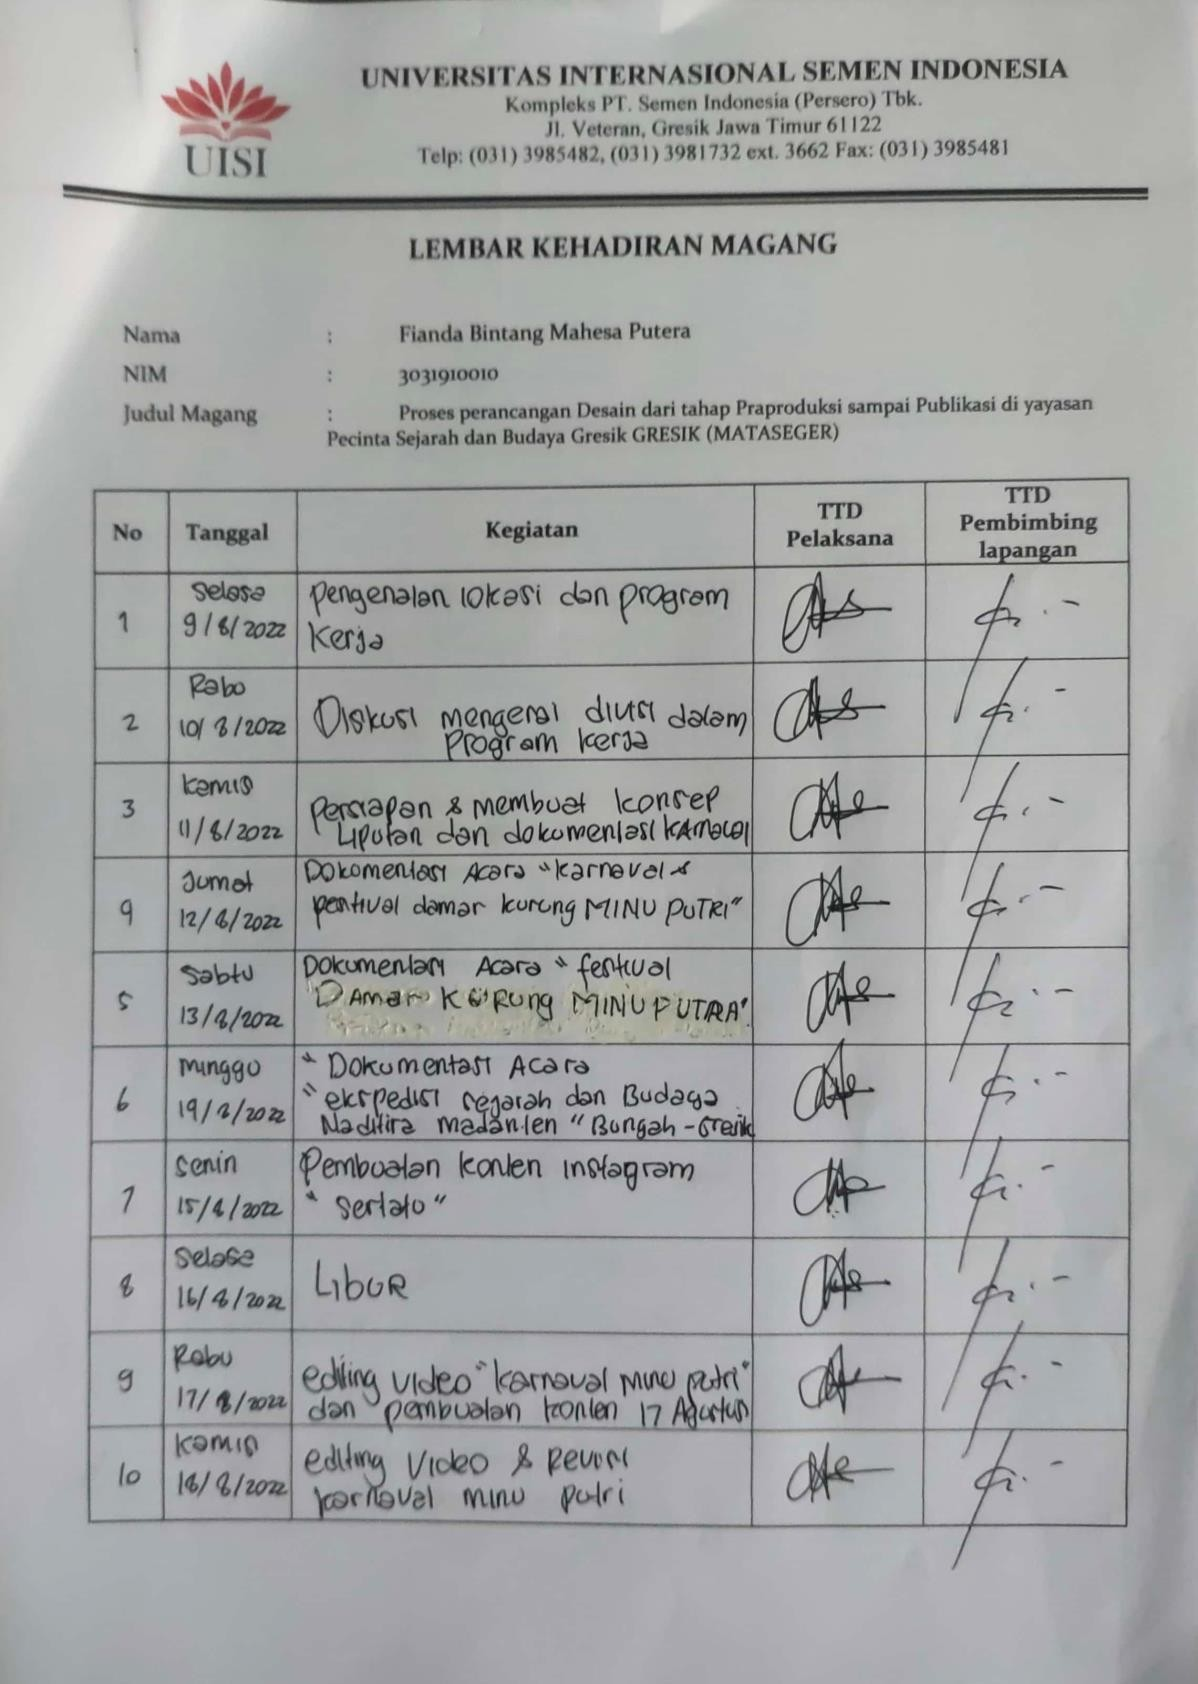 UISI
UNIVERSITAS INTERNASIONAL SEMEN INDONESIA
Kompleks PT. Semen Indonesia (Persero) Tbk.
Jl. Veteran, Gresik Jawa Timur 61122
Telp: (031) 3985482, (031) 3981732 ext. 3662 Fax: (031) 3985481
LEMBAR KEHADIRAN MAGANG
Nama : Fianda Bintang Mahesa Putera
NIM : 3031910010
Judul Magang : Proses perancangan Desain dari tahap Praproduksi sampai Publikasi di yayasan
Pecinta Sejarah dan Budaya Gresik GRESIK (MATASEGER)
No Tanggal Kegiatan TTD Pelaksana TTD Pembimbing lapangan
1 Selasa 9/8/2022
Pengenalan lokasi dan program
kerja
2 Rabo 10/8/2022
Diskusi mengenai divisi dalam
program kerja
3 Kamis 11/8/2022
Persiapan & membuat konsep
Liputan dan dokumentasi
4 Jumat 12/8/2022
Dokomentasi Acara "karnaval &
damar kurung MINU PUTRI"
5 Sabtu 13/8/2022
Dokumentasi Acara " festival
Damar Kurung MINU PUTRA"
6 Minggu 14/8/2022
" Dokumentasi Acara
" ekspedisi sejarah dan Budaya
Naditira " Bungah - Gresik
7 Senin 15/8/2022
Pembuatan konten instagram
"
8 Selasa 16/8/2022
Libur
9 Rabu 17/8/2022
editing video "karnaval minu putri"
dan pembuatan konten 17 Agustus
10 Kamis 18/8/2022
editing video & Revisi
karnaval minu putri